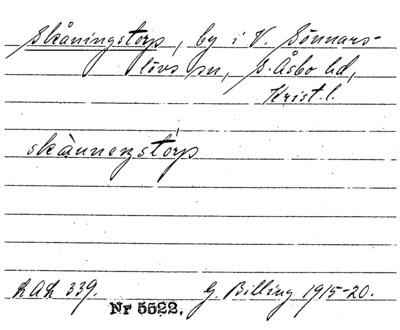 Skåningstorp, by i V. Sönnars-
lövs sn, S. Åsbo hd,
Krist. l.
skånneņstórp
LAL 339.
Nr 5522.
G. Billing 1915-20.